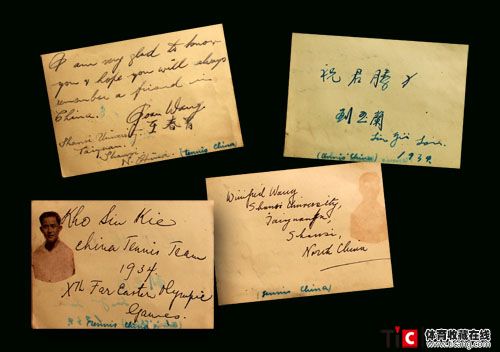 I am very glad to know
you & hope you will always
remember a friend in
China.
Wang
王春菁
Shansi University,
Taiyuan,
Shansi,
N. China.
(Tennis China)
祝君勝
(Tennis China)
1934
Kho Sin Kie
China Tennis Team
1934
Xth Far Easter Olympic
Games.
Winifred Wang
Shansi University,
Taiyuanfu,
Shansi,
North China
(Tennis China)
TIC 体育收藏在线
www.ticang.com